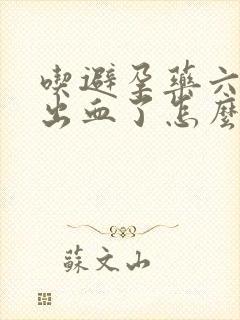 喫避孕藥六
出血了怎麼
蘇文山